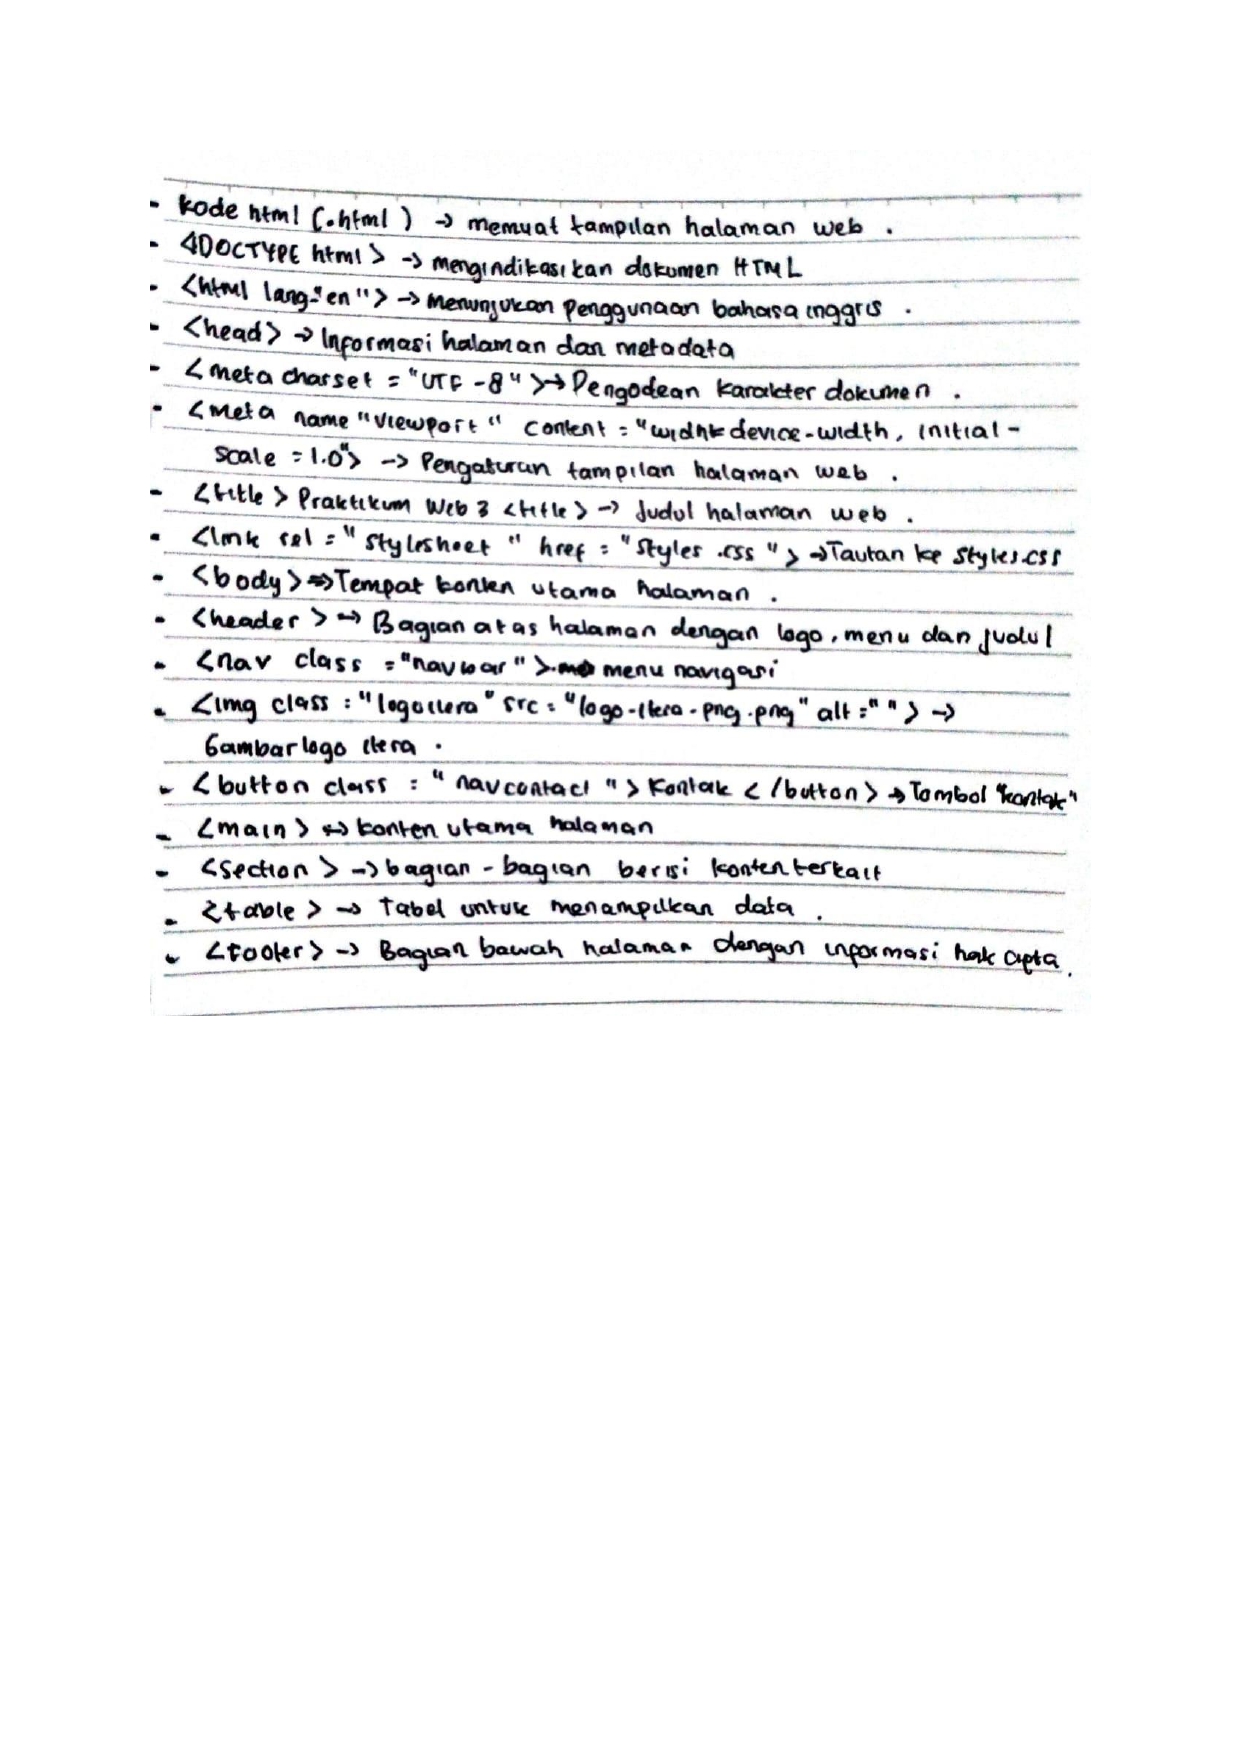 - Kode html (.html) -> memuat tampilan halaman web .
- <DOCTYPE html> -> mengindikasikan dokumen HTML
- <html lang="en"> -> Menunjukan Penggunaan bahasa inggris .
- <head> -> Informasi halaman dan metadata
- <meta charset = "UTF -8" > -> Pengodean karakter dokumen .
- <meta name "viewport" content = "width=device-width, initial-
scale = 1.0"> -> Pengaturan tampilan halaman web .
- <title> Praktikum Web 3 <title> -> Judul halaman web .
- <link rel = "stylesheet" href = "styles .css "> -> Tautan ke styles.css
- <body> => Tempat konten utama halaman .
- <header> -> Bagian atas halaman dengan logo, menu dan judul
- <nav class = "navbar" > menu navigasi
- <img class : "logoitera" src = "logo-itera-png.png" alt =" " > ->
Gambar logo itera .
- <button class : "navcontact "> Kontak </button> -> Tombol "kontak"
- <main> -> konten utama halaman
- <section> -> bagian - bagian berisi konten terkait
- <table> -> Tabel untuk menampilkan data .
- <footer> -> Bagian bawah halaman dengan informasi hak cipta .